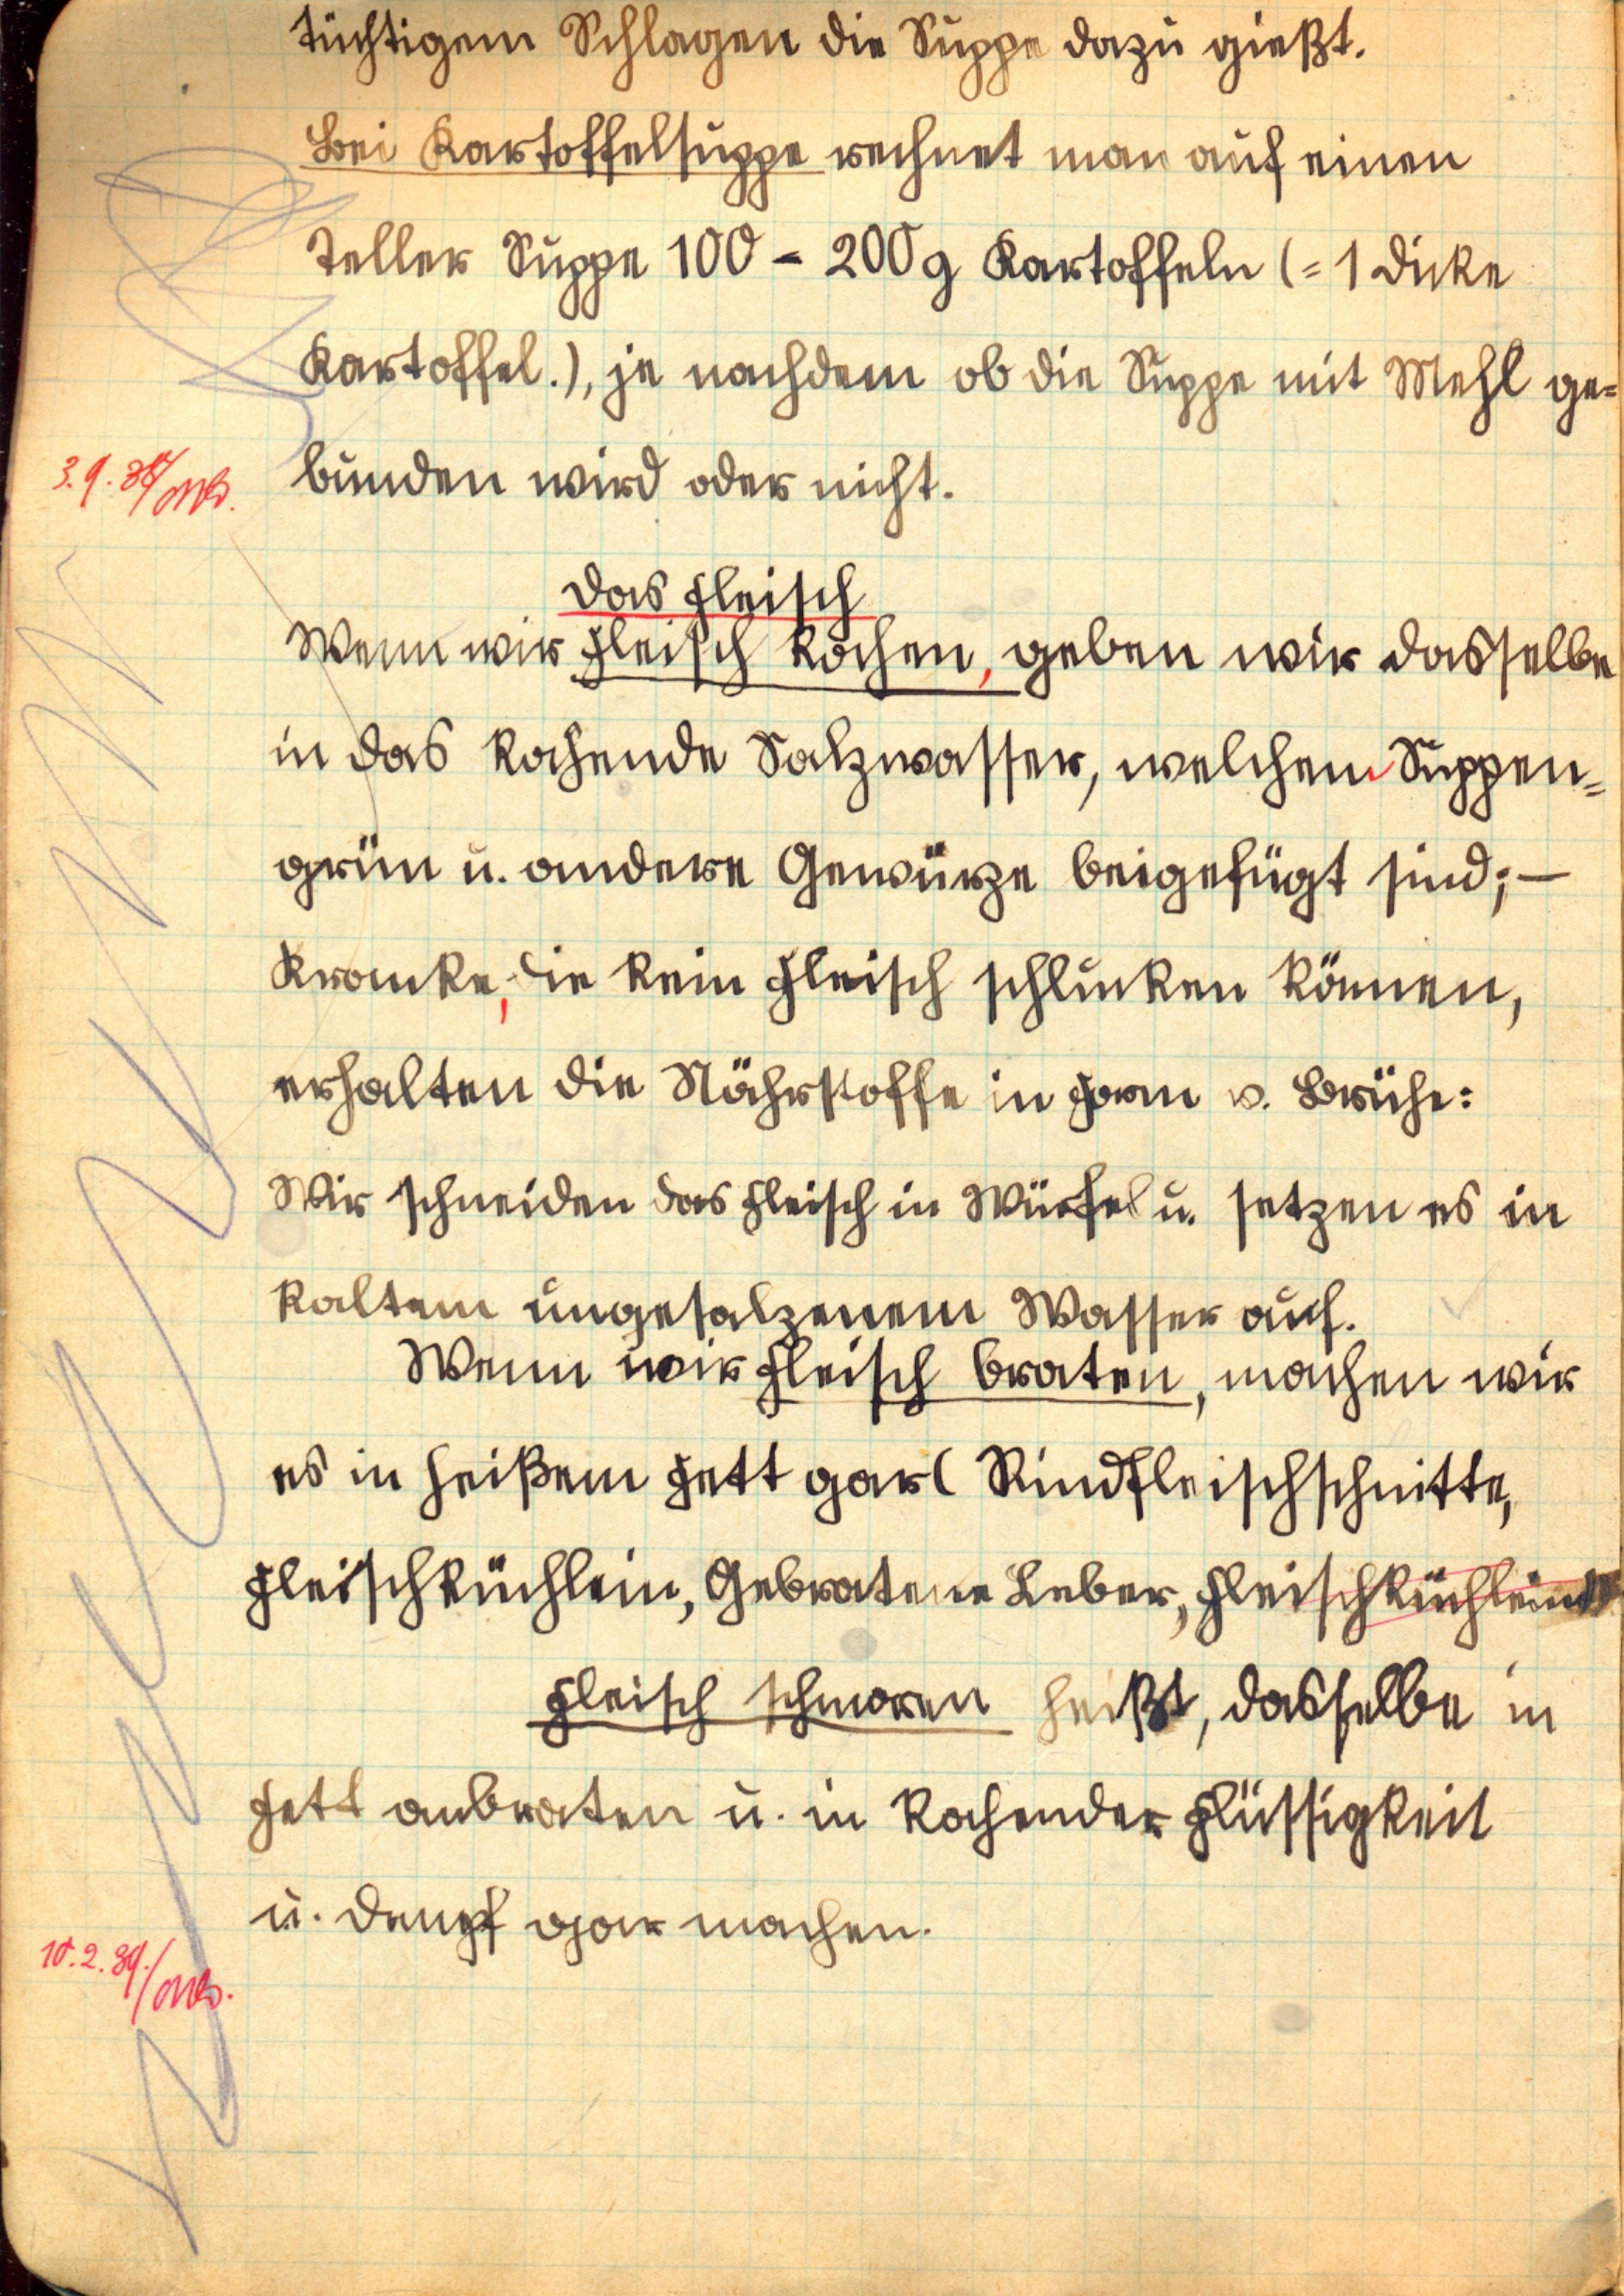 tüchtigem Schlagen die Suppe dazu gießt.
Bei Kartoffelsuppe rechnet man auf einen
Teller Suppe 100 - 200g Kartoffeln (= 1 dicke
Kartoffel.), je nachdem ob die Suppe mit Mehl ge=
bunden wird oder nicht.
3.9.
Das Fleisch
Wenn wir Fleisch kochen, geben wir dasselbe
in das kochende Salzwasser, welchem Suppen=
grün u. andere Gewürze beigefügt sind; —
Kranke, die kein Fleisch schlucken können,
erhalten die Nährstoffe in Form v. Brühe:
Wir schneiden das Fleisch in Würfel u. setzen es in
kaltem ungesalzenem Wasser auf.
Wenn wir Fleisch braten, machen wir
es in heißem Fett gar( Rindfleischschnitte,
Fleischküchlein, Gebratene Leber, Fleischküchlein
Fleisch schmoren heißt, dasselbe in
Fett anbraten u. in kochender Flüssigkeit
u. Dampf gar machen.
10.2.39./